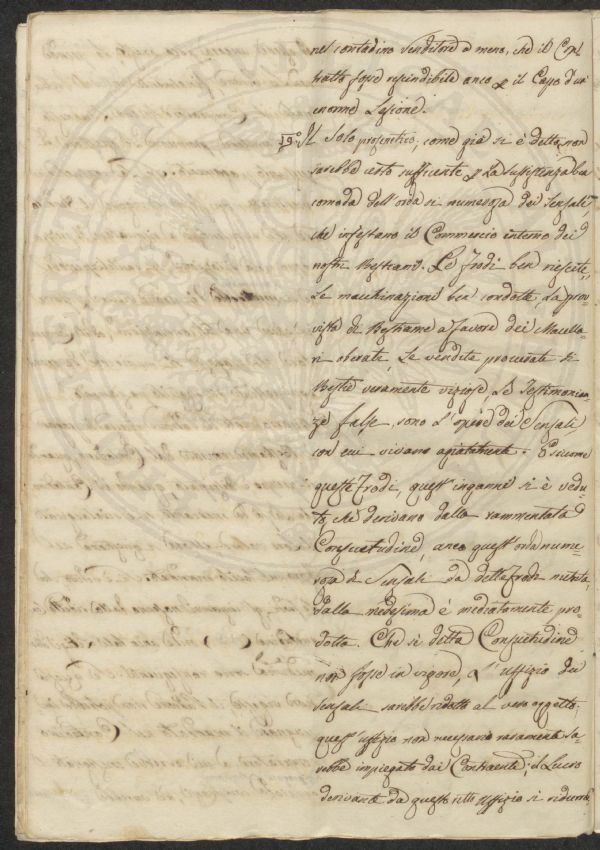 nel contadino venditore a meno, che il Con-
tratto fosse rescindibile anco p il Capo d'un
enorme Lesione.
19.° Il solo prosentico, come già si è detto, non
sarebbe certo sufficente p la sussistenza ben
comoda dell'orda si numerosa dei Sensali,
che infestano il Commercio interno dei
nostri Bestiami. Le frodi ben riescite,
Le macchinazioni ben condotte, La prov-
vista di Bestiame a favore dei Macella-
ri oberati, Le vendite procurate di
Bestie veramente viziose, Le Testimonian-
ze false, sono L'opere dei Sensali,
con cui vivano agiatamente. E siccome
queste frodi, quest'inganni si è vedu-
to, che derivano dalla rammentata
Consuetudine, anco quest'orda nume-
rosa di Sensali da dette frodi nutrita,
dalla medesima è mediatamente pro-
dotta. Che se detta Consuetudine
non fosse in vigore, e l'uffizio dei
sensali sarebbe ridotto al vero oggetto;
quest'uffizio non necessario raramente sa-
rebbe impiegato dai Contraenti; il Lucro
derivante da questo retto uffizio si ridurrebbe